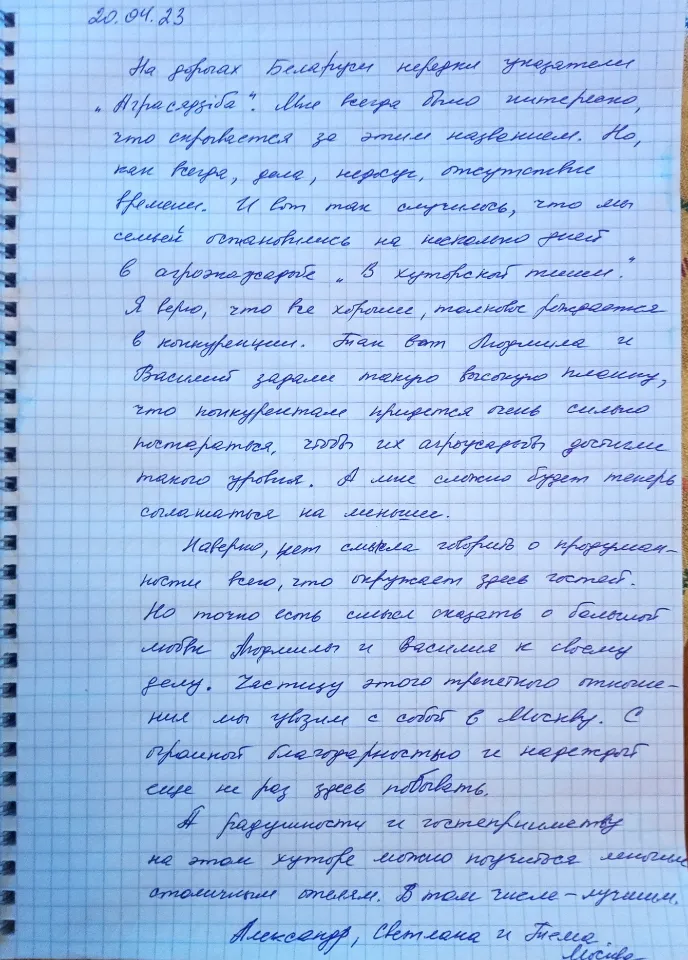 20.04.23
На дорогах Беларуси нередки указатели
„Аграсядзіба“. Мне всегда было интересно,
что скрывается за этим названием. Но,
как всегда, дела, недосуг, отсутствие
времени. И вот так случилось, что мы
семьей остановились на несколько дней
в агроэкоусадьбе „В хуторской тиши“.
Я верю, что все хорошее, толковое рождается
в конкуренции. Так вот Людмила и
Василий задали такую высокую планку,
что конкурентам придется очень сильно
постараться, чтобы их агроусадьбы достигли
такого уровня. А мне сложно будет теперь
соглашаться на меньшее.
Наверно, нет смысла говорить о продуман-
ности всего, что окружает здесь гостей.
Но точно есть смысл сказать о большой
любви Людмилы и Василия к своему
делу. Частицу этого трепетного отноше-
ния мы увозим с собой в Москву. С
огромной благодарностью и надеждой
еще не раз здесь побывать.
А радушности и гостеприимству
на этом хуторе можно поучиться
столичным отелям. В том числе – лучшим.
Александр, Светлана и Тема.
Москва